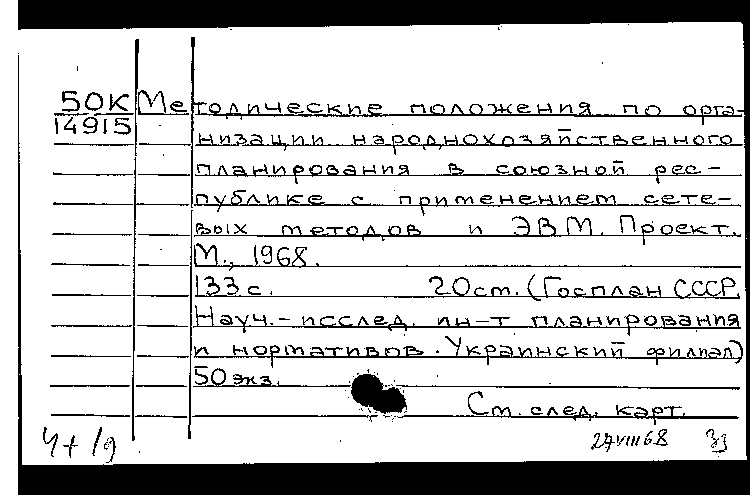 50К Методические положения по орга-
14915
низации народнохозяйственного
планирования в союзной рес-
публике с применением сете-
вых методов и ЭВМ. Проект.
М., 1968.
133 с. 20 см. (Госплан СССР.
Науч.-исслед. ин-т планирования
и нормативов. Украинский филиал)
50 экз.
См. след. карт.
27 VIII 68